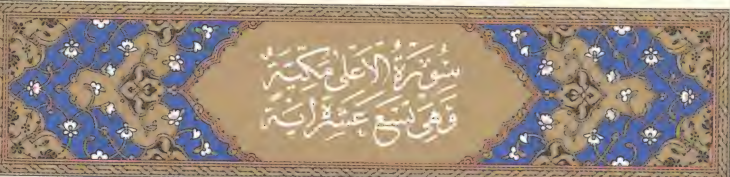 سُورَةُ الْاَعْلٰى مَكِّيَّةٌ
وَهِىَ تِسْعَ عَشْرَةَ اٰيَةً